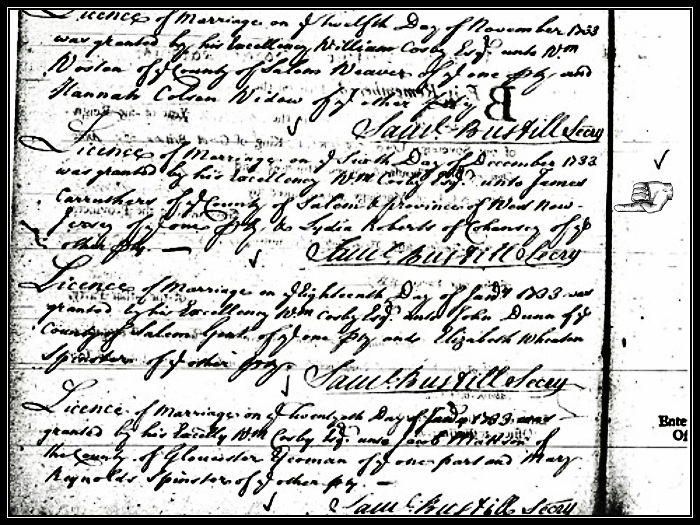 Licence of Marriage on ye twelfth Day of November 1733
was granted by his Excellency William Cosby Esqr. unto Wm
of ye County of Salem Weaver of ye one pty and
Hannah Colsen Widow of ye other pty
B
Saml. Bustill Secry
Licence of Marriage on ye Sixth Day of December 1733
was granted by his Excellency Wm Cosby Esqr. unto James
Carruthers of ye County of Salem & Province of West New-
Jersey of ye one pty & Lydia Roberts of Cohansey of ye
other pty —
Saml. Bustill Secry
Licence of Marriage on ye Eighteenth Day of Jany 1733 was
granted by his Excellency Wm Cosby Esqr. unto John Dunn of ye
County of Salem Gent. of ye one pty and Elizabeth Wheaton
Spinster of ye other pty
Saml. Bustill Secry
Licence of Marriage on ye Twentyeth Day of Jany 1733 was
granted by his Excelly Wm Cosby Esqr. unto Jacob Mattson of
the County of Gloucester Yeoman of ye one part and Mary
Reynolds Spinster of ye other pty. —
Saml. Bustill Secry
Ente
Of